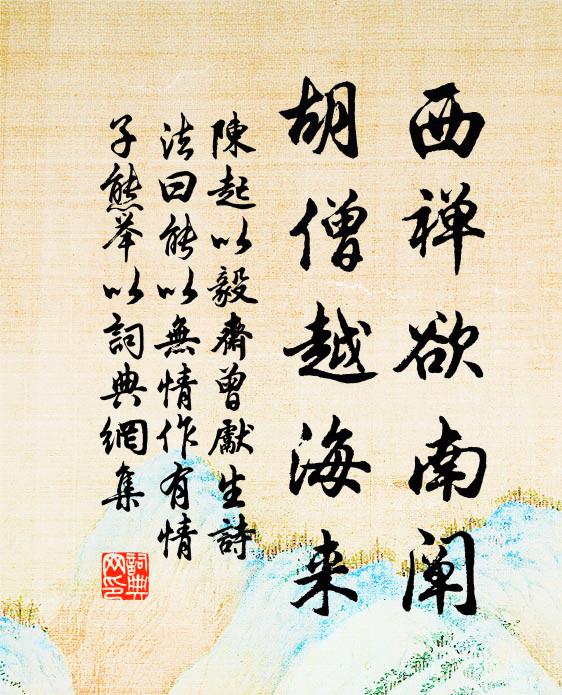 西禅欲南阐
胡僧越海来
陳起以毅齋曾獻生詩
法曰能以無情作有情
子熊举以詞典網集
詞典
网印